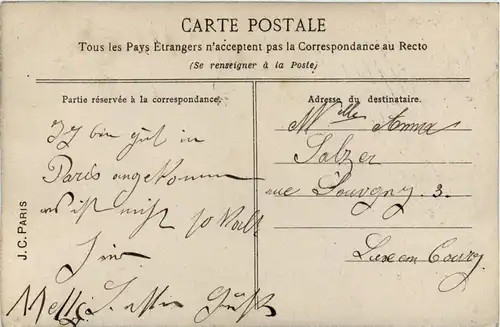 CARTE POSTALE
Tous les Pays Étrangers n'acceptent pas la Correspondance au Recto
(Se renseigner à la Poste)
Partie réservée à la correspondance.
Ich bin gut in
Paris angekommen
es ist nicht so kalt
hier
Adresse du destinataire.
Mlle Anna
Salzer
rue Louvigny 3.
Luxembourg
J. C. PARIS